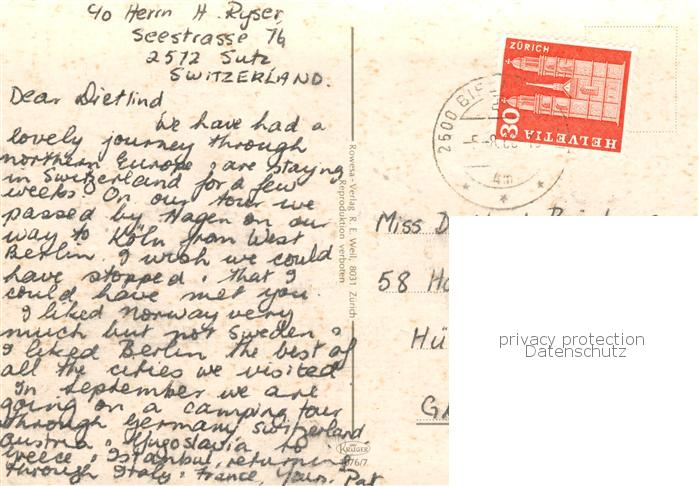 c/o Herrn H. Ryser
Seestrasse 76
2572 Sutz
SWITZERLAND.
Dear Dietlind
We have had a
lovely journey through
northern Europe & are staying
in Switzerland for a few
weeks. On our tour we
passed by Hagen on our
way to Köln from West
Berlin. I wish we could
have stopped & that I
could have met you.
I liked Norway very
much but not Sweden &
I liked Berlin the best of
all the cities we visited
In September we are
going on a camping tour
through Germany Switzerland
Austria & Yugoslavia to
Greece & Istanbul, returning
through Italy & France, Yours, Pat
Rowesa-Verlag R. E. Weil, 8031 Zürich
Reproduktion verboten
KRÜGER
ZÜRICH
30
HELVETIA
2500 BI
Miss D
58 Ha
Hü
privacy protection
Datenschutz